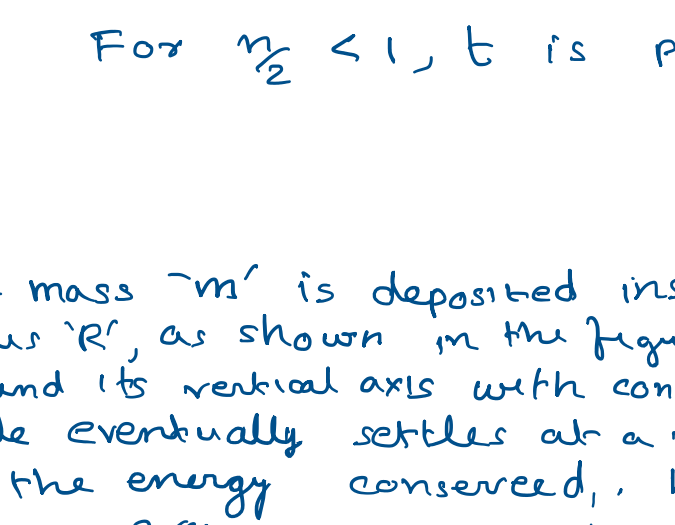 For n/2 < 1, t is
mass 'm' is deposited ins
us 'R', as shown in the figu
and its vertical axis with con
le eventually settles at a
the energy conserved,.